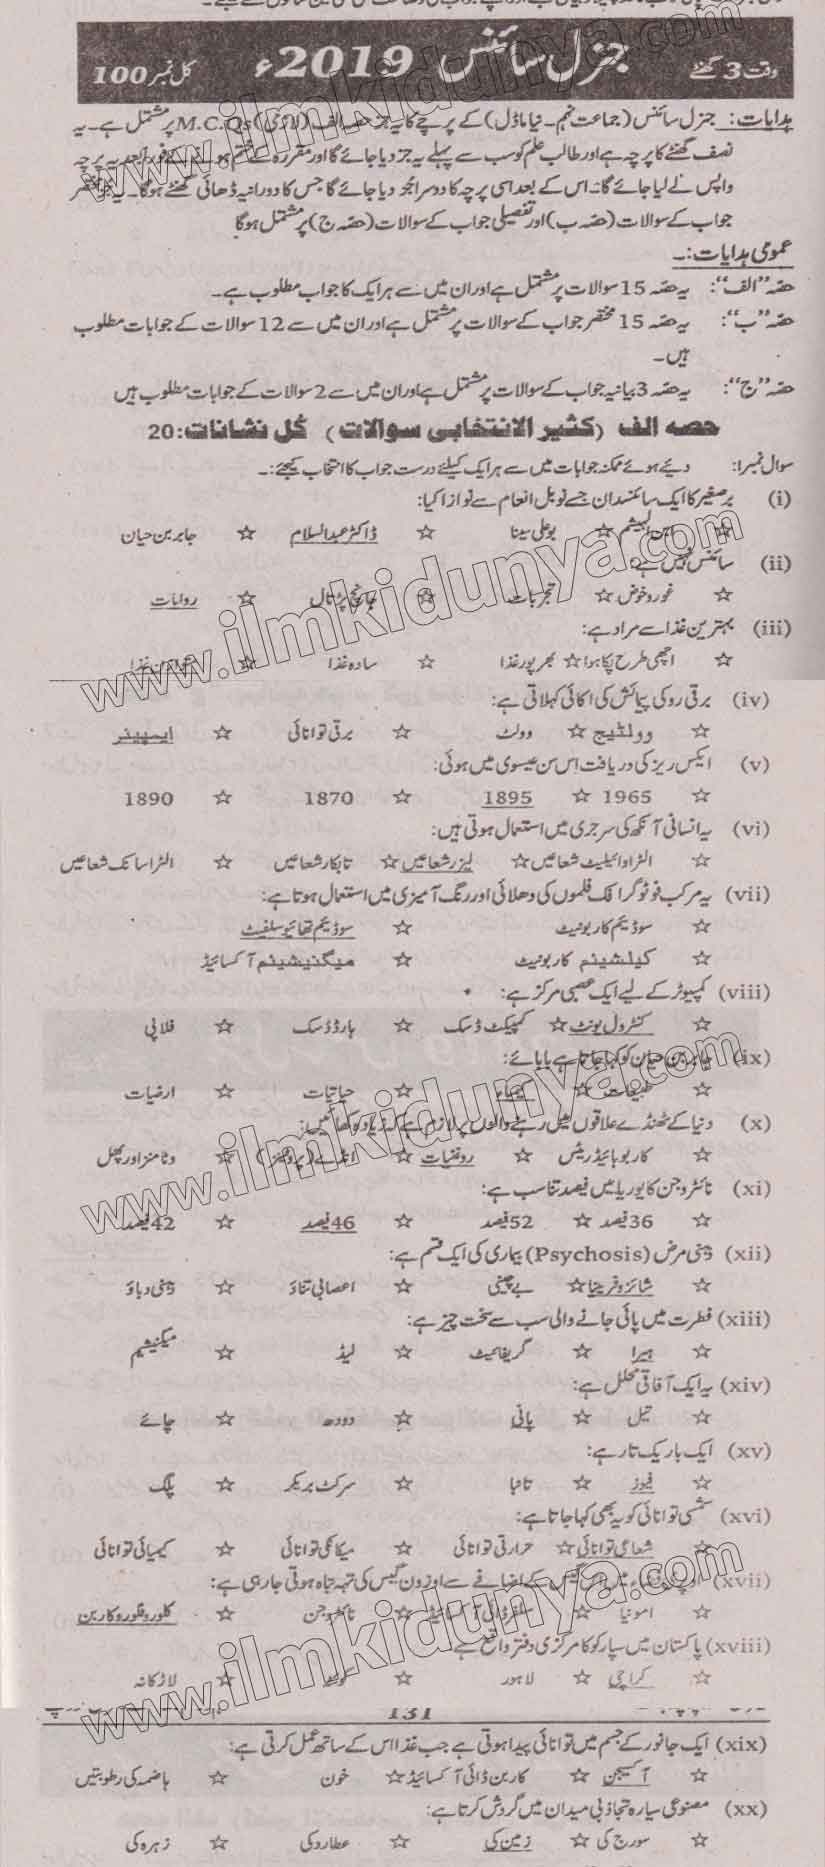 جنرل سائنس 2019ء
وقت 3 گھنٹے
کل نمبر 100
ہدایات: جنرل سائنس (جماعت نہم۔ نیا ماڈل) کے پرچے کا یہ جز حصہ الف (لازمی) M.C.Qs پر مشتمل ہے۔ یہ
نصف گھنٹے کا پرچہ ہے اور طالب علم کو سب سے پہلے یہ جز دیا جائے گا اور مقررہ کے ختم ہونے کے فوراً بعد یہ پرچہ
واپس لے لیا جائے گا۔ اس کے بعد اسی پرچہ کا دوسرا جز دیا جائے گا جس کا دورانیہ ڈھائی گھنٹے ہوگا۔ یہ جز مختصر
جواب کے سوالات (حصہ ب) اور تفصیلی جواب کے سوالات (حصہ ج) پر مشتمل ہوگا
عمومی ہدایات:۔
حصہ "الف": یہ حصہ 15 سوالات پر مشتمل ہے اور ان میں سے ہر ایک کا جواب مطلوب ہے۔
حصہ "ب": یہ حصہ 15 مختصر جواب کے سوالات پر مشتمل ہے اور ان میں سے 12 سوالات کے جوابات مطلوب
ہیں۔
حصہ "ج": یہ حصہ 3 بیانیہ جواب کے سوالات پر مشتمل ہے اور ان میں سے 2 سوالات کے جوابات مطلوب ہیں
حصہ الف (کثیر الانتخابی سوالات) کل نشانات: 20
سوال نمبر1: دیئے ہوئے ممکنہ جوابات میں سے ہر ایک کیلئے درست جواب کا انتخاب کیجئے:۔
(i) برصغیر کا ایک سائنسدان جسے نوبل انعام سے نوازا گیا:
☆ ابن الہیثم ☆ بوعلی سینا ☆ ڈاکٹر عبدالسلام ☆ جابر بن حیان
(ii) سائنس نہیں ہے:
☆ غور و خوض ☆ تجربات ☆ جانچ پڑتال ☆ روایات
(iii) بہترین غذا سے مراد ہے:
☆ اچھی طرح پکا ہوا ☆ بھرپور غذا ☆ سادہ غذا ☆ متوازن غذا
(iv) برقی رو کی پیمائش کی اکائی کہلاتی ہے:
☆ وولٹیج ☆ وولٹ ☆ برقی توانائی ☆ ایمپیئر
(v) ایکس ریز کی دریافت اس سن عیسوی میں ہوئی:
☆ 1965 ☆ 1895 ☆ 1870 ☆ 1890
(vi) یہ انسانی آنکھ کی سرجری میں استعمال ہوتی ہیں:
☆ الٹرا وائیلیٹ شعاعیں ☆ لیزر شعاعیں ☆ تابکار شعاعیں ☆ الٹرا سانک شعاعیں
(vii) یہ مرکب فوٹو گرافک فلموں کی دھلائی اور رنگ آمیزی میں استعمال ہوتا ہے:
☆ سوڈیم کاربونیٹ ☆ سوڈیم تھائیو سلفیٹ
☆ کیلشیئم کاربونیٹ ☆ میگنیشیئم آکسائیڈ
(viii) کمپیوٹر کے لیے ایک عصبی مرکز ہے:
☆ کنٹرول یونٹ ☆ کمپیکٹ ڈسک ☆ ہارڈ ڈسک ☆ فلاپی
(ix) جابر بن حیان کو کہا جاتا ہے بابائے:
☆ طبیعات ☆ کیمیاء ☆ حیاتیات ☆ ارضیات
(x) دنیا کے ٹھنڈے علاقوں میں رہنے والوں پر لازم ہے کہ زیادہ کھائیں:
☆ کاربوہائیڈریٹس ☆ روغنیات ☆ انڈے (پروٹینز) ☆ وٹامنز اور پھل
(xi) نائٹروجن کا یوریا میں فیصد تناسب ہے:
☆ 36 فیصد ☆ 52 فیصد ☆ 46 فیصد ☆ 42 فیصد
(xii) ذہنی مرض (Psychosis) بیماری کی ایک قسم ہے:
☆ شائزوفرینیا ☆ بے چینی ☆ اعصابی تناؤ ☆ ذہنی دباؤ
(xiii) فطرت میں پائی جانے والی سب سے سخت چیز ہے:
☆ ہیرا ☆ گریفائیٹ ☆ لیڈ ☆ میگنیشیم
(xiv) یہ ایک آفاقی محلل ہے:
☆ تیل ☆ پانی ☆ دودھ ☆ چائے
(xv) ایک باریک تار ہے:
☆ فیوز ☆ تانبا ☆ سرکٹ بریکر ☆ پلگ
(xvi) شمسی توانائی کو یہ بھی کہا جاتا ہے:
☆ شعاعی توانائی ☆ حرارتی توانائی ☆ میکانکی توانائی ☆ کیمیائی توانائی
(xvii) اوپری فضاء میں اس گیس کے اضافے سے اوزون گیس کی تہہ تباہ ہوتی جا رہی ہے:
☆ امونیا ☆ سلفر ڈائی آکسائیڈ ☆ نائٹروجن ☆ کلوروفلوروکاربن
(xviii) پاکستان میں سپارکو کا مرکزی دفتر واقع ہے
☆ کراچی ☆ لاہور ☆ کوئٹہ ☆ لاڑکانہ
131
(xix) ایک جانور کے جسم میں توانائی پیدا ہوتی ہے جب غذا اس کے ساتھ عمل کرتی ہے:
☆ آکسیجن ☆ کاربن ڈائی آکسائیڈ ☆ خون ☆ ہاضمہ کی رطوبتیں
(xx) مصنوعی سیارہ تجاذبی میدان میں گردش کرتا ہے:
☆ سورج کی ☆ زمین کی ☆ عطارد کی ☆ زہرہ کی
www.ilmkidunya.com
www.ilmkidunya.com
www.ilmkidunya.com
www.ilmkidunya.com